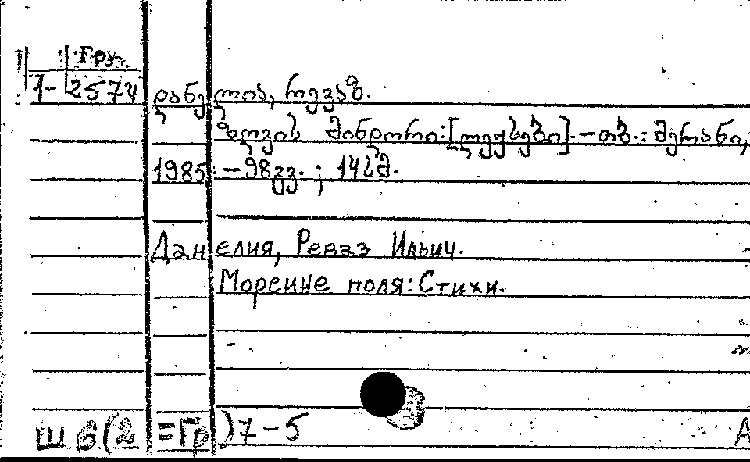 Груз.
1-2574
დანელია, რევაზ.
ზღვის მინდორი: [ლექსები] - თბ.: მერანი,
1985. - 98გვ. ; 14სმ.
Данелия, Реваз Ильич.
Морские поля: Стихи.
Ш 6(2=Гр)7-5
А